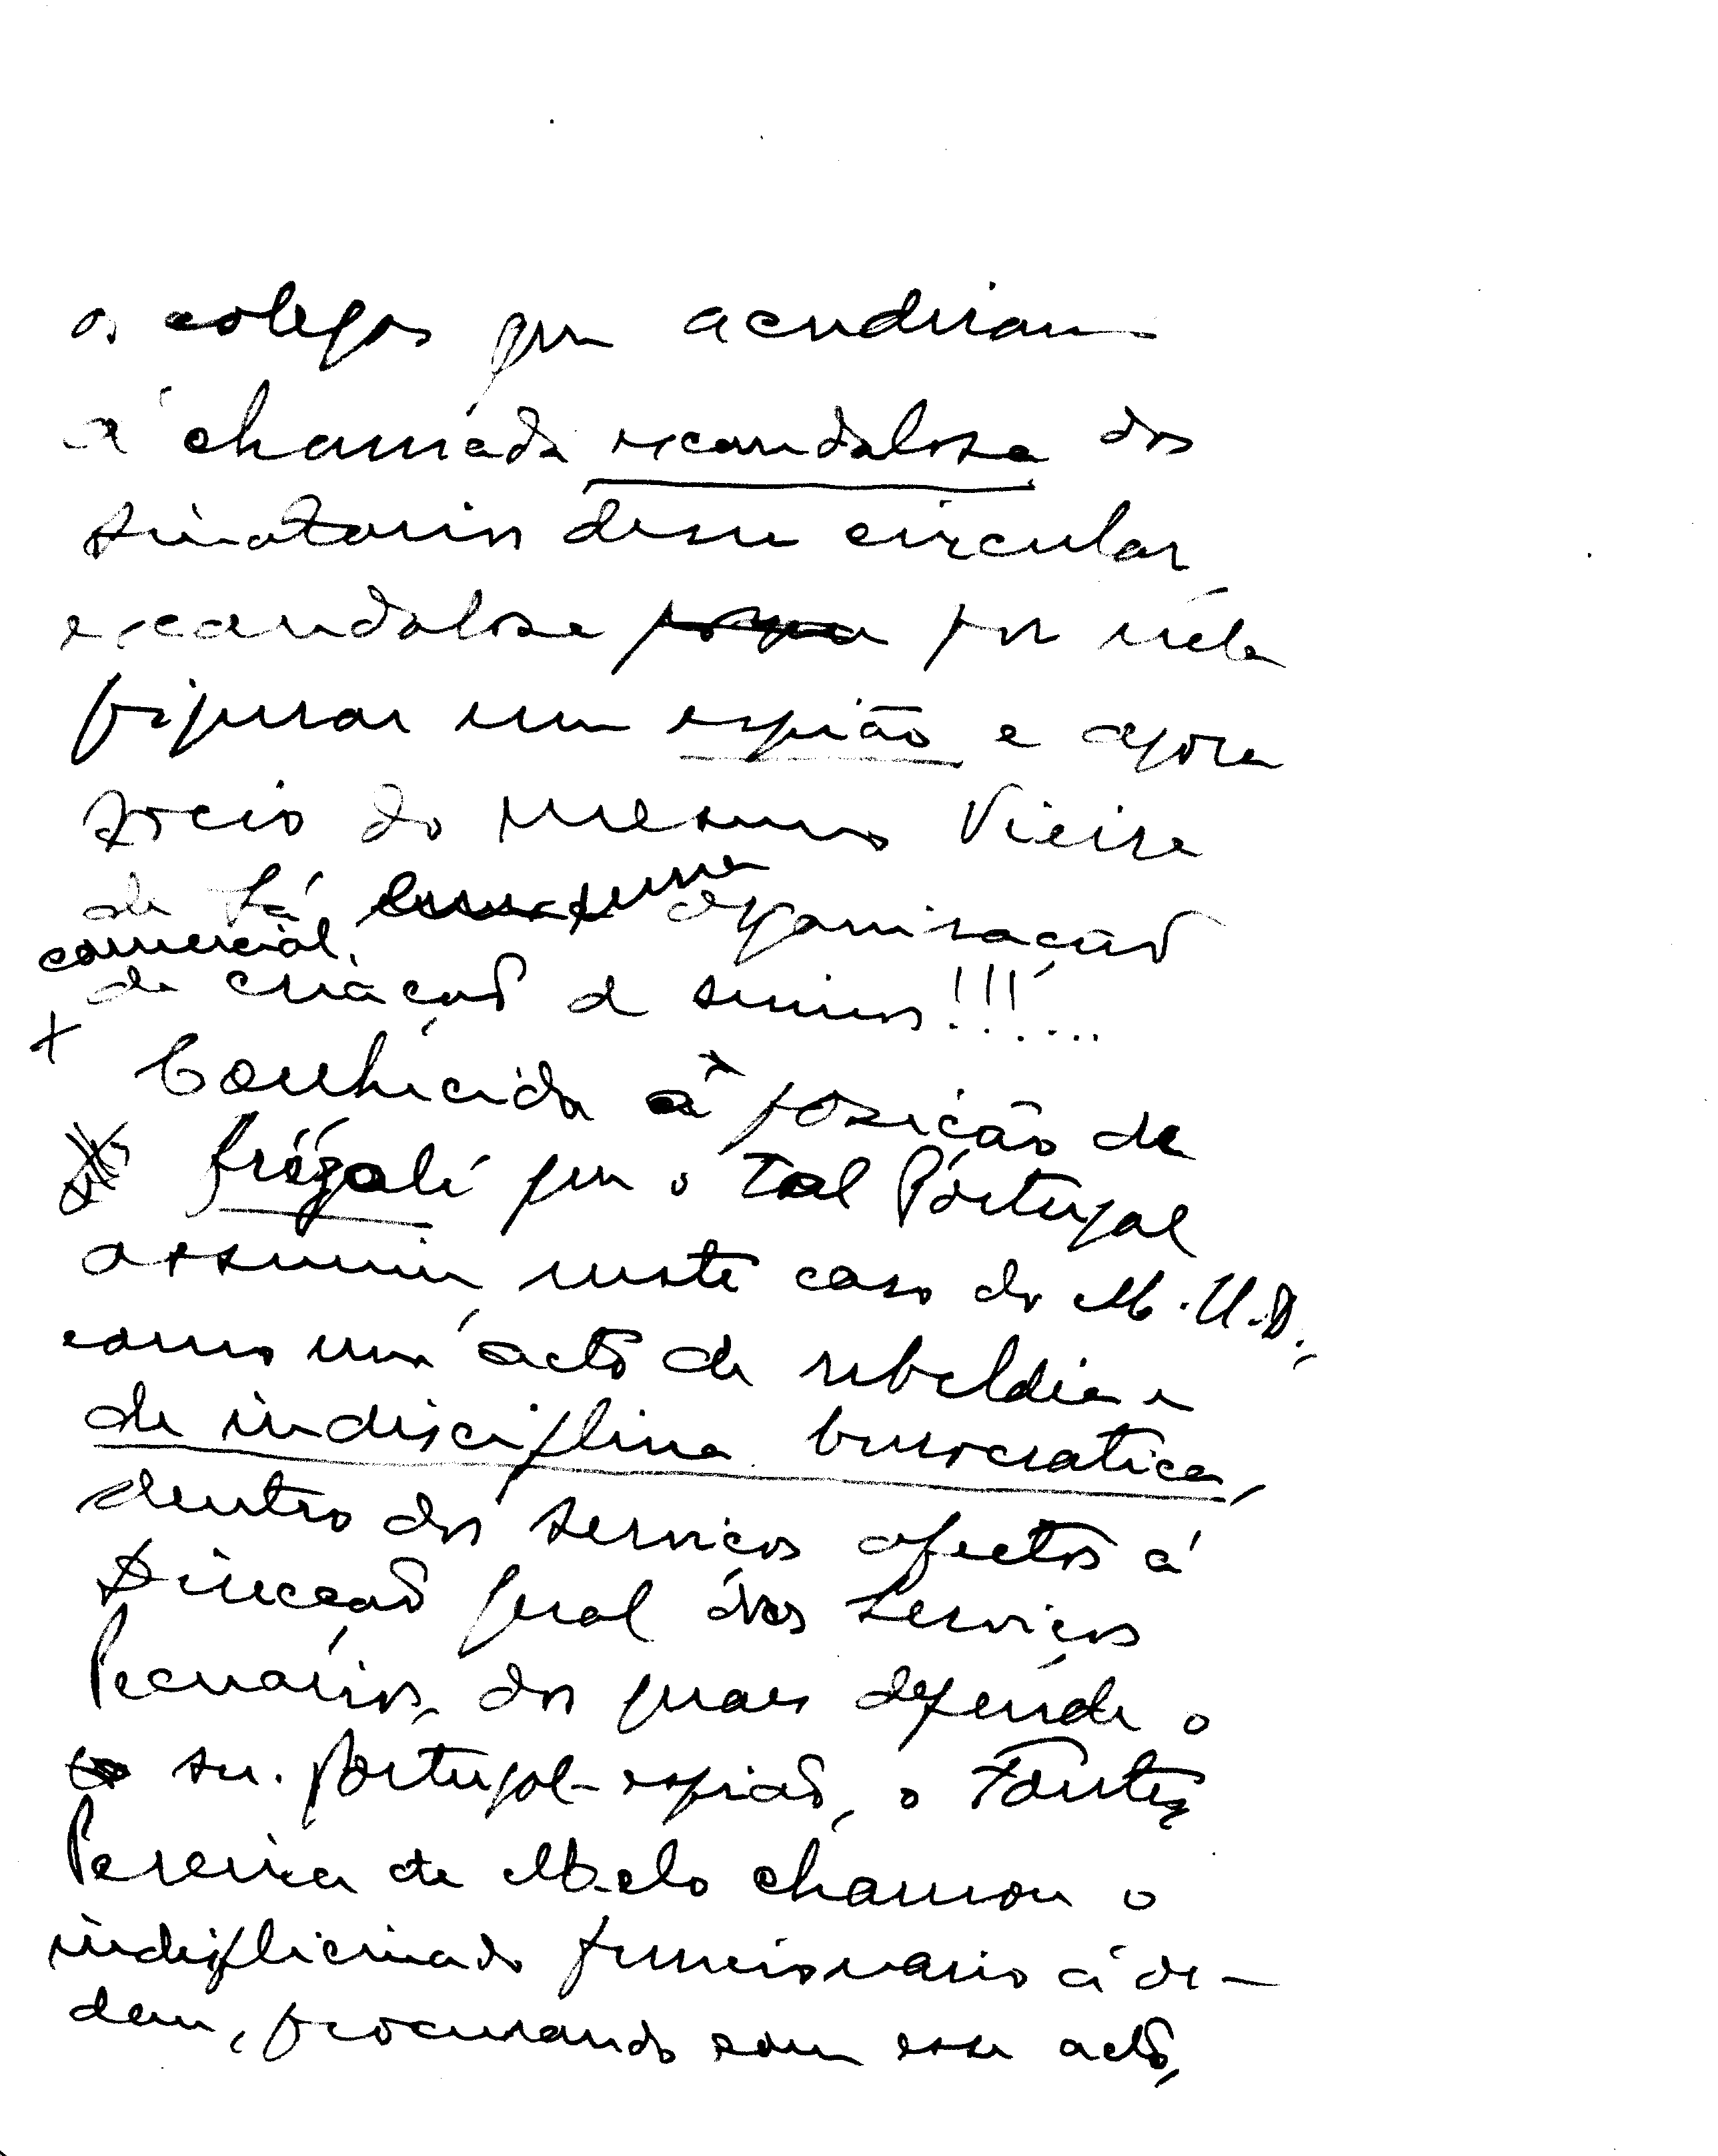 os colegas que acudiram
á chamada escandalosa dos
sinatarios desse circular,
escandalosa porque por nela
figurar um espião e agora
socio do mesmo Vieira
de Sá, numa organisação
comercial
de criação de suinos!!!...
x Conhecida a posição de
que o tal Portugal
assumiu neste caso do M.U.D.,
como um acto de rebeldia e
de indisciplina burocratica,
dentro dos serviços afectos á
Direcção geral dos Serviços
Pecuários, dos quaes depende o
sr. Portugal-espião, o Fontes
Pereira de Melo chamou o
indisplicinado funcionario á or-
dem, procurando com esse acto,